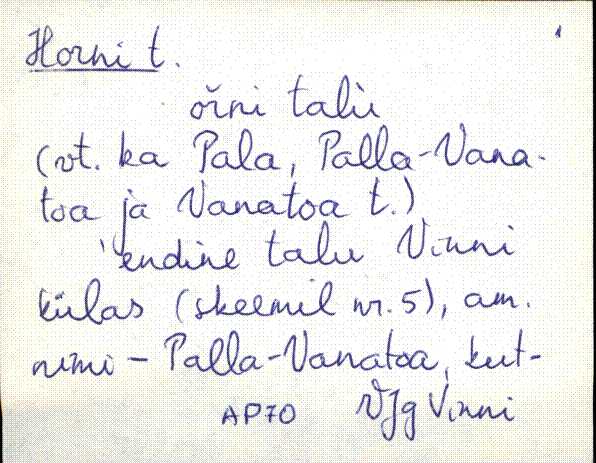 Horni t.
oŕni talu
(vt. ka Pala, Palla-Vana-
toa ja Vanatoa t.)
endine talu Vinni
külas (skeemil nr. 5), am.
nimi - Palla-Vanatoa, kut-
AP70 VJg Vinni